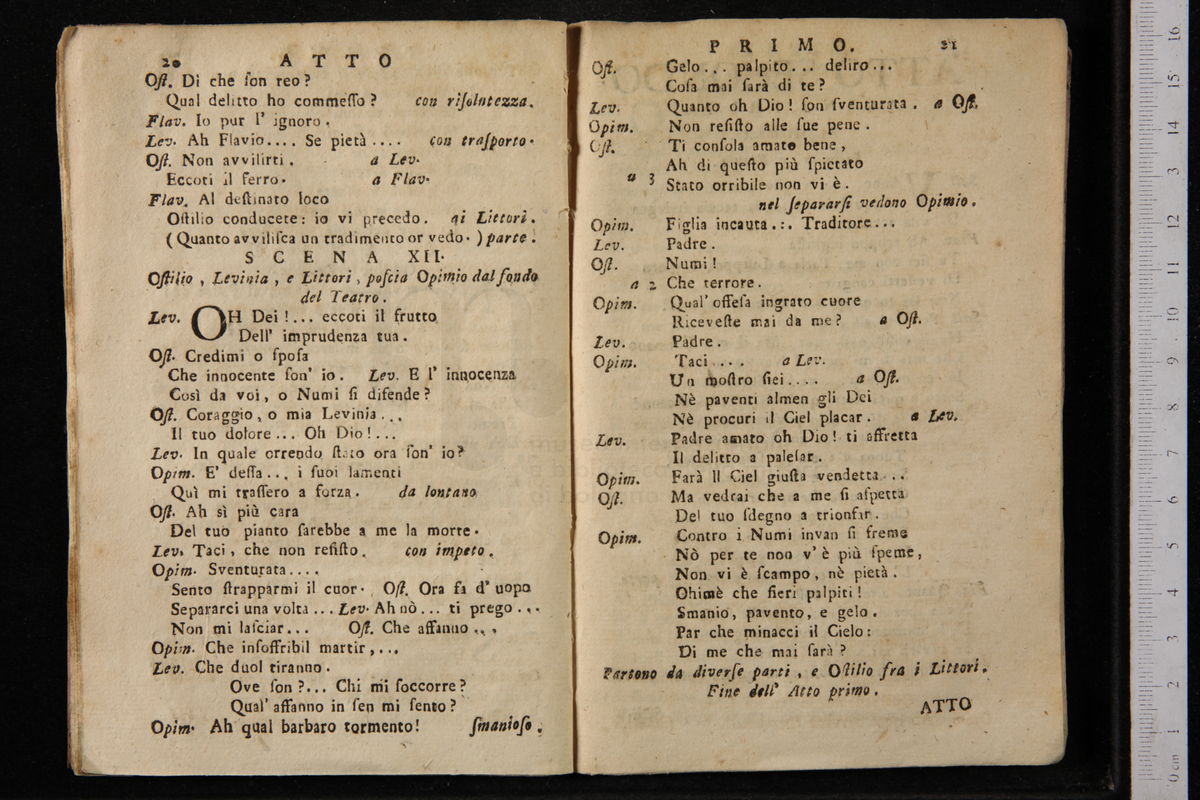 20 ATTO
Oſt. Di che ſon reo?
Qual delitto ho commeſſo? con riſolutezza.
Flav. Io pur l' ignoro.
Lev. Ah Flavio.... Se pietà .... con traſporto.
Oſt. Non avvilirti. a Lev.
Eccoti il ferro. a Flav.
Flav. Al deſtinato loco
Oſtilio conducete: io vi precedo. ai Littori.
(Quanto avviliſca un tradimento or vedo.) parte.
SCENA XII.
Oſtilio, Levinia, e Littori, poſcia Opimio dal fondo
del Teatro.
Lev. OH Dei!... eccoti il frutto
Dell' imprudenza tua.
Oſt. Credimi o ſpoſa
Che innocente ſon' io. Lev. E l' innocenza
Così da voi, o Numi ſi difende?
Oſt. Coraggio, o mia Levinia...
Il tuo dolore... Oh Dio!...
Lev. In quale orrendo ſtato ora ſon' io?
Opim. E' deſſa... i ſuoi lamenti
Quì mi traſſero a forza. da lontano
Oſt. Ah sì più cara
Del tuo pianto ſarebbe a me la morte.
Lev. Taci, che non reſiſto. con impeto.
Opim. Sventurata....
Sento ſtrapparmi il cuor. Oſt. Ora fa d' uopo
Separarci una volta... Lev. Ah nò... ti prego...
Non mi laſciar... Oſt. Che affanno...
Opim. Che inſoffribil martir,...
Lev. Che duol tiranno.
Ove ſon?... Chi mi ſoccorre?
Qual' affanno in ſen mi ſento?
Opim. Ah qual barbaro tormento! ſmanioſo.
PRIMO. 21
Oſt. Gelo... palpito... deliro...
Coſa mai ſarà di te?
Lev. Quanto oh Dio! ſon ſventurata. a Oſt.
Opim. Non reſiſto alle ſue pene.
Oſt. Ti conſola amato bene,
Ah di queſto più ſpietato
a 3 Stato orribile non vi è.
nel ſepararſi vedono Opimio.
Opim. Figlia incauta.:. Traditore...
Lev. Padre.
Oſt. Numi!
a 2 Che terrore.
Opim. Qual' offeſa ingrato cuore
Riceveſte mai da me? a Oſt.
Lev. Padre.
Opim. Taci .... a Lev.
Un moſtro ſiei.... a Oſt.
Nè paventi almen gli Dei
Nè procuri il Ciel placar. a Lev.
Lev. Padre amato oh Dio! ti affretta
Il delitto a paleſar.
Opim. Farà Il Ciel giuſta vendetta...
Oſt. Ma vedrai che a me ſi aſpetta
Del tuo ſdegno a trionfar.
Opim. Contro i Numi invan ſi freme
Nò per te non v' è più ſpeme,
Non vi è ſcampo, nè pietà.
Ohimè che fieri palpiti!
Smanio, pavento, e gelo.
Par che minacci il Cielo:
Di me che mai ſarà?
Partono da diverſe parti, e Oſtilio fra i Littori.
Fine dell' Atto primo.
ATTO